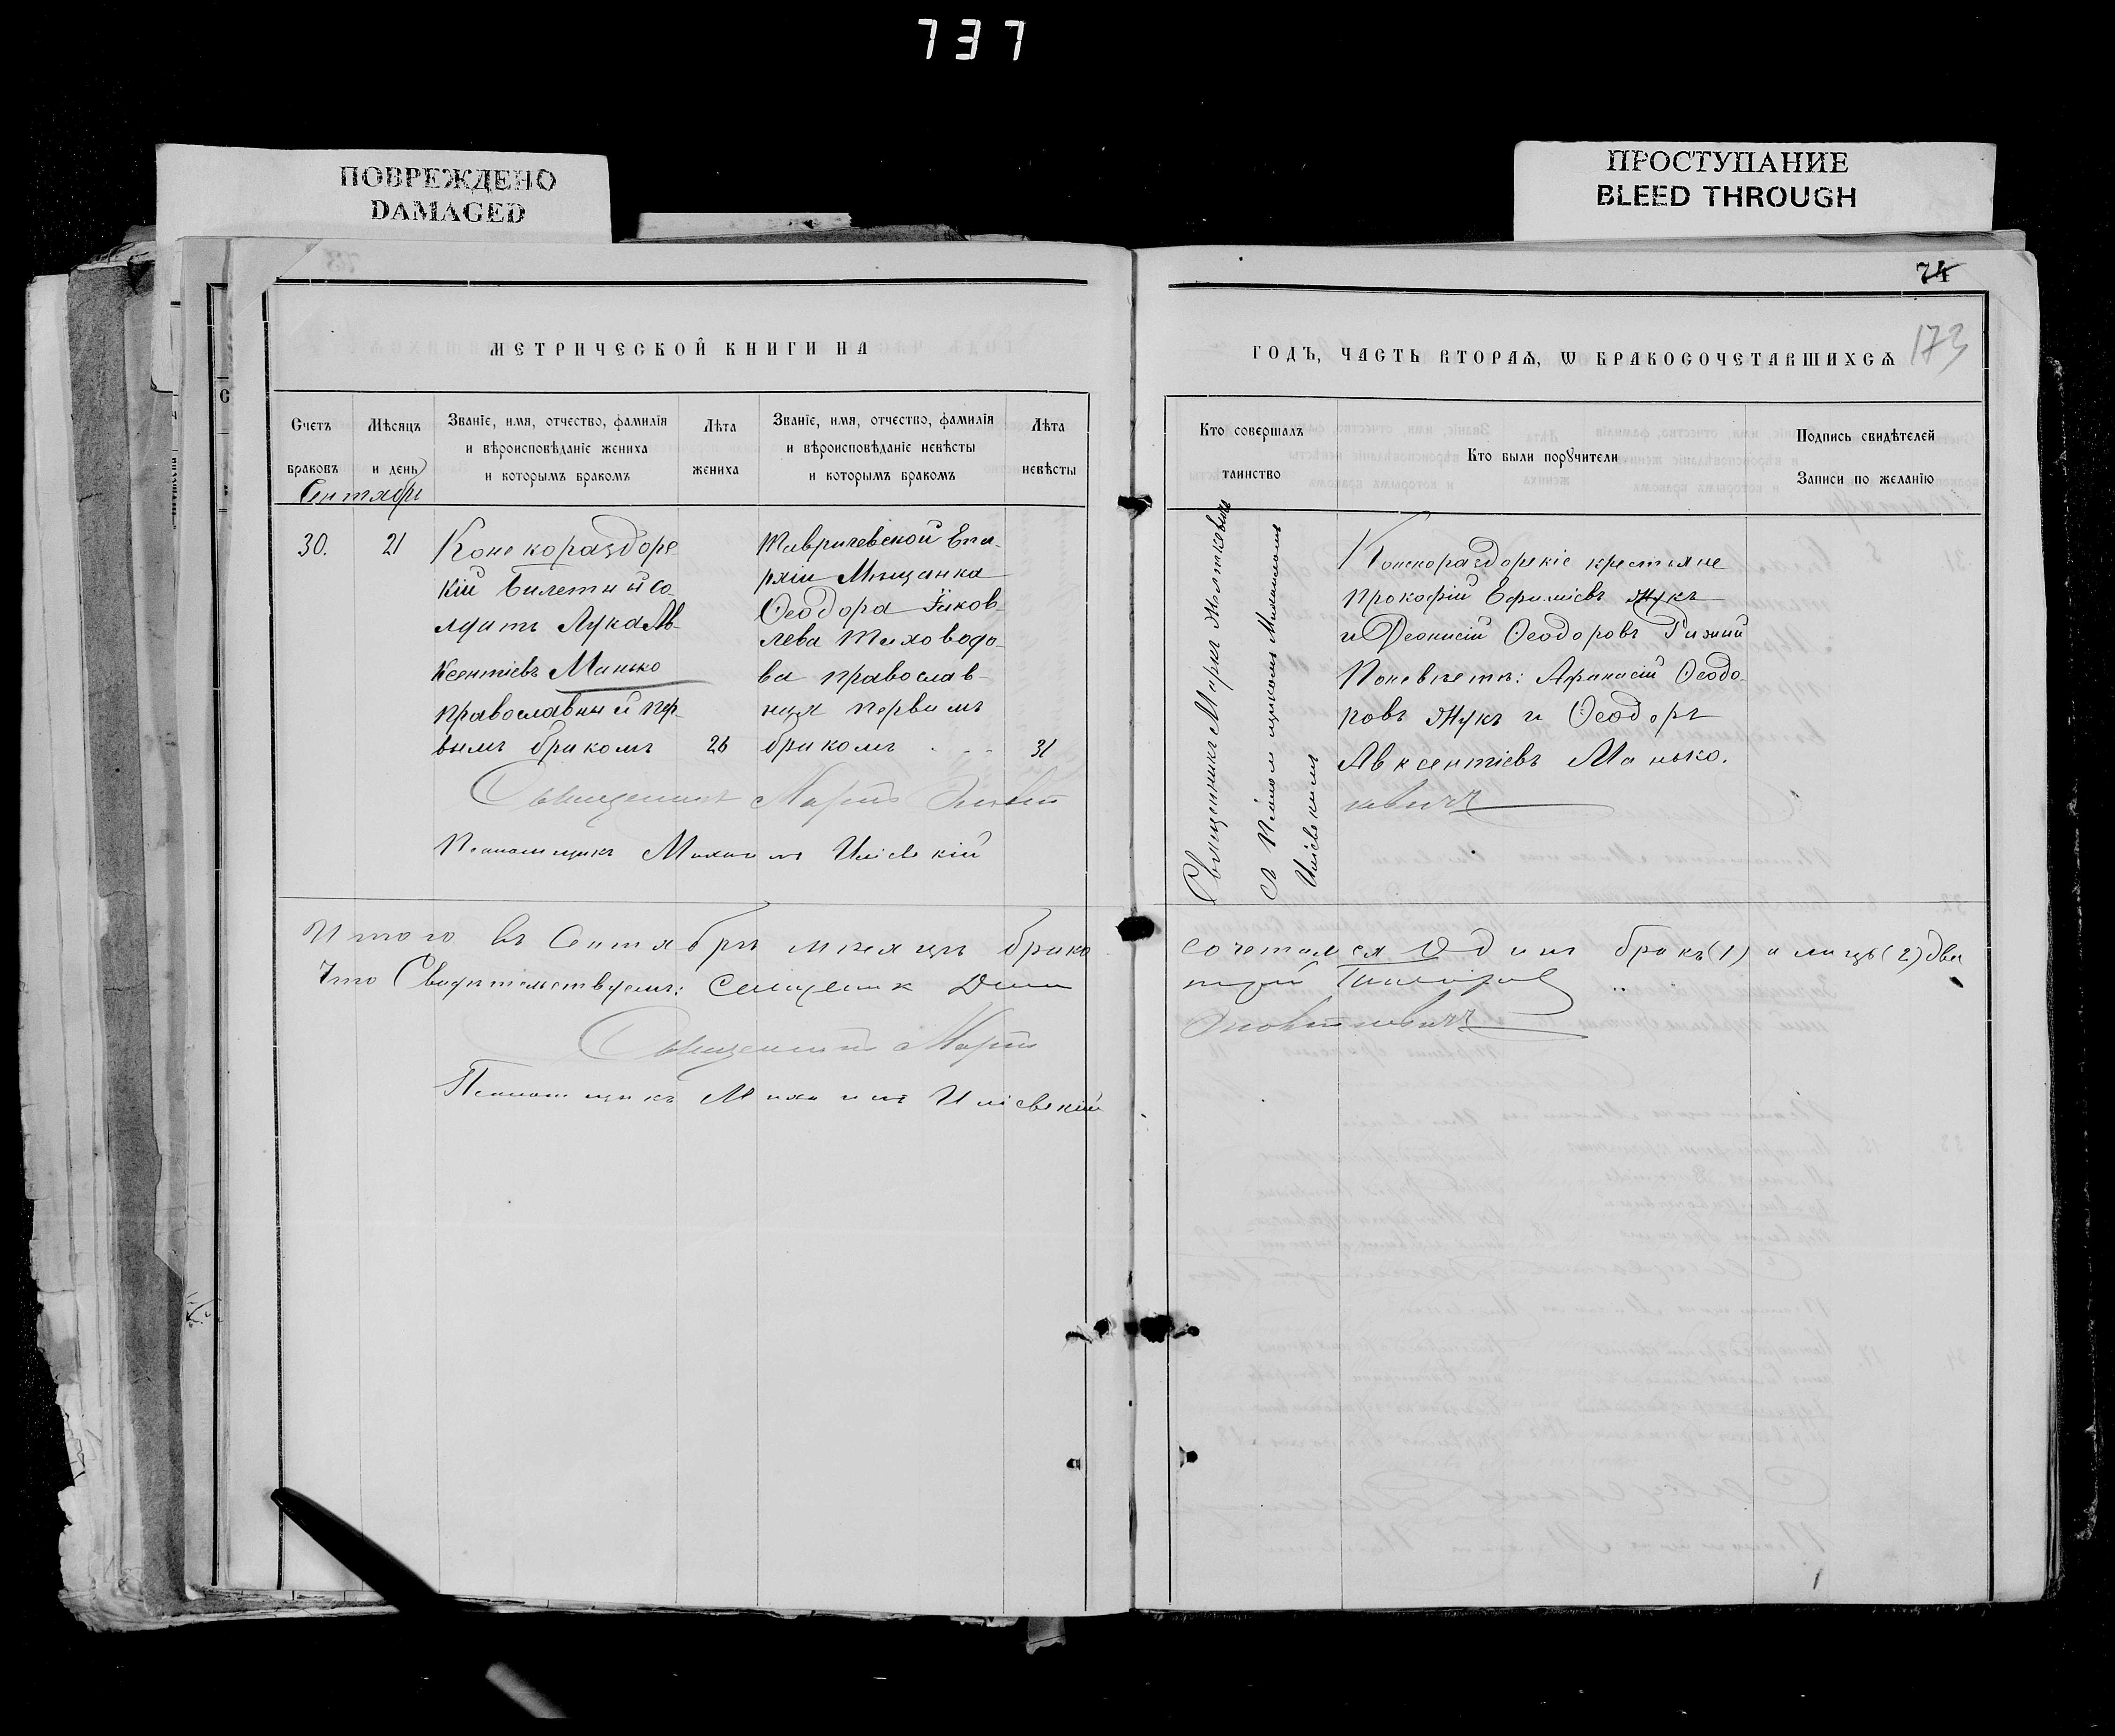 737
ПОВРЕЖДЕНО
DAMAGED
ПРОСТУПАНИЕ
BLEED THROUGH
74
173
МЕТРИЧЕСКОЙ КНИГИ НА
ГОДЪ, ЧАСТЬ ВТОРАѦ, Ѡ БРАКОСОЧЕТАВШИХСѦ
Счетъ браковъ
Мѣсяцъ и день
Званіе, имя, отчество, фамилія и вѣроисповѣданіе жениха и которымъ бракомъ
Лѣта жениха
Званіе, имя, отчество, фамилія и вѣроисповѣданіе невѣсты и которымъ бракомъ
Лѣта невѣсты
Кто совершалъ таинство
Кто были порꙋчители
Подпись свидѣтелей Записи по желанію
Сентябрь
30.
21
Конскораздорс
кій билетный со
лдатъ Лука Ав-
ксентіевъ Манько
православный пер-
вымъ бракомъ
26
Таврической Епа-
рхіи Мѣщанка
Ѳеодора Яков-
лева Тиховодо-
ва православ-
ная первымъ
бракомъ
31
Священникъ Маркъ
съ Псаломщикомъ Михаиломъ
Конскораздорскіе крестьяне
Прокофій Ефиміевъ Жукъ
и Діонисій Ѳеодоровъ Рижий
По невѣстѣ: Афанасій Ѳеодо-
ровъ Жукъ и Ѳеодоръ
Авксентіевъ Манько.
Священникъ Маркъ
Псаломщикъ Михаилъ
Итого въ Сентябрѣ мѣсяцѣ брако
сочетался Одинъ бракъ (1) а лицъ (2) два
Что Свидѣтельствуемъ: Священник
Священникъ Маркъ
Псаломщикъ Михаилъ